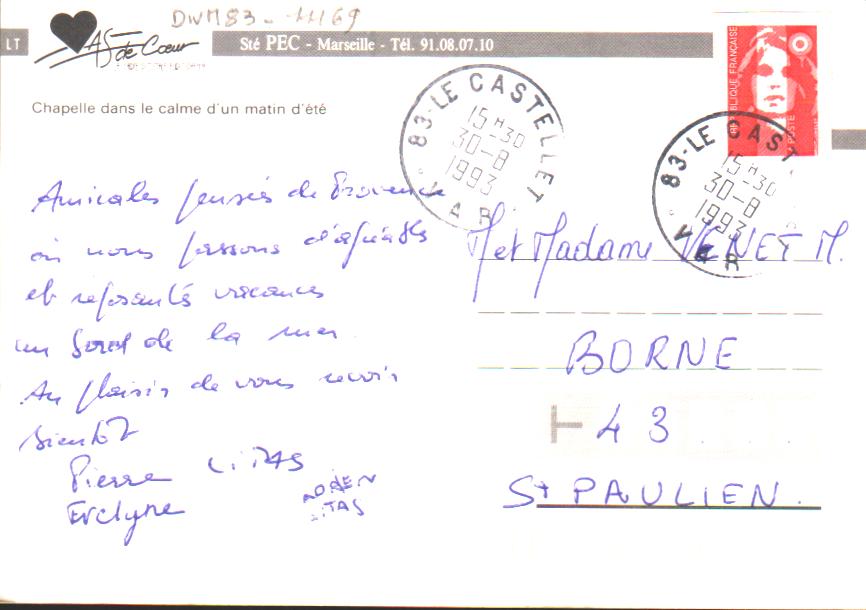 DWM83 - 11169
LT
AS de Cœur
Sté PEC - Marseille - Tél. 91.08.07.10
RÉPUBLIQUE FRANÇAISE
LA POSTE
Chapelle dans le calme d'un matin d'été
83-LE CASTELLET
15 H 30
30-8
1993
VAR
83-LE CAST
15 H 30
30-8
1993
VAR
Amicales pensées de Provence
où nous passons d'agréables
et reposantes vacances
au bord de la mer.
Au plaisir de vous revoir
bientôt
Pierre LITAS
Evelyne
LITAS
M et Madame VENET M.
BORNE
43
St PAULIEN.